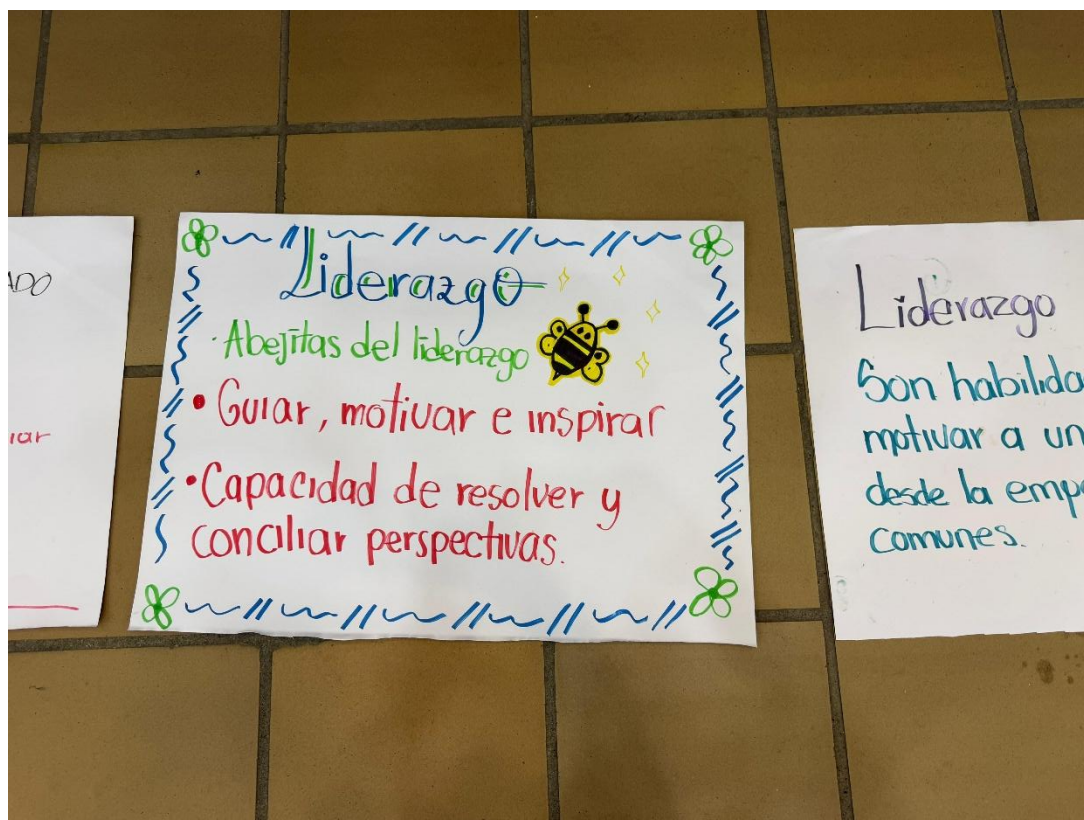 Liderazgo
· Abejitas del liderazgo
• Guiar, motivar e inspirar
• Capacidad de resolver y
conciliar perspectivas.
Liderazgo
Son habilida
motivar a un
desde la empe
comunes.
ADO
iar